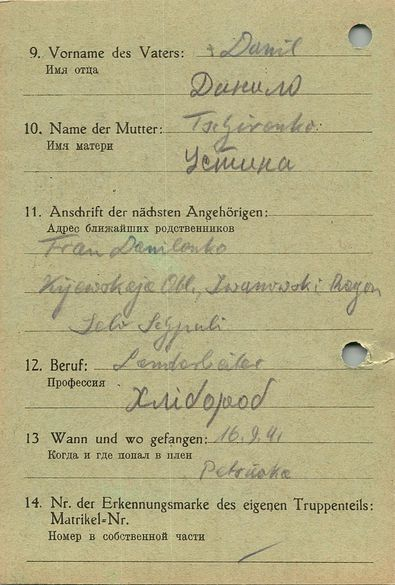 9. Vorname des Vaters: Danil
Имя отца
Данило
10. Name der Mutter: Tschironko
Имя матери
Устина
11. Anschrift der nächsten Angehörigen:
Адрес ближайших родственников
Frau Danilonko
Kijewskaja Obl., Iwanowski Rayon
Selo Schpuli
12. Beruf: Landarbeiter
Профессия
Хлібороб
13 Wann und wo gefangen: 16.9.41
Когда и где попал в плен
14. Nr. der Erkennungsmarke des eigenen Truppenteils:
Matrikel-Nr.
Номер в собственной части